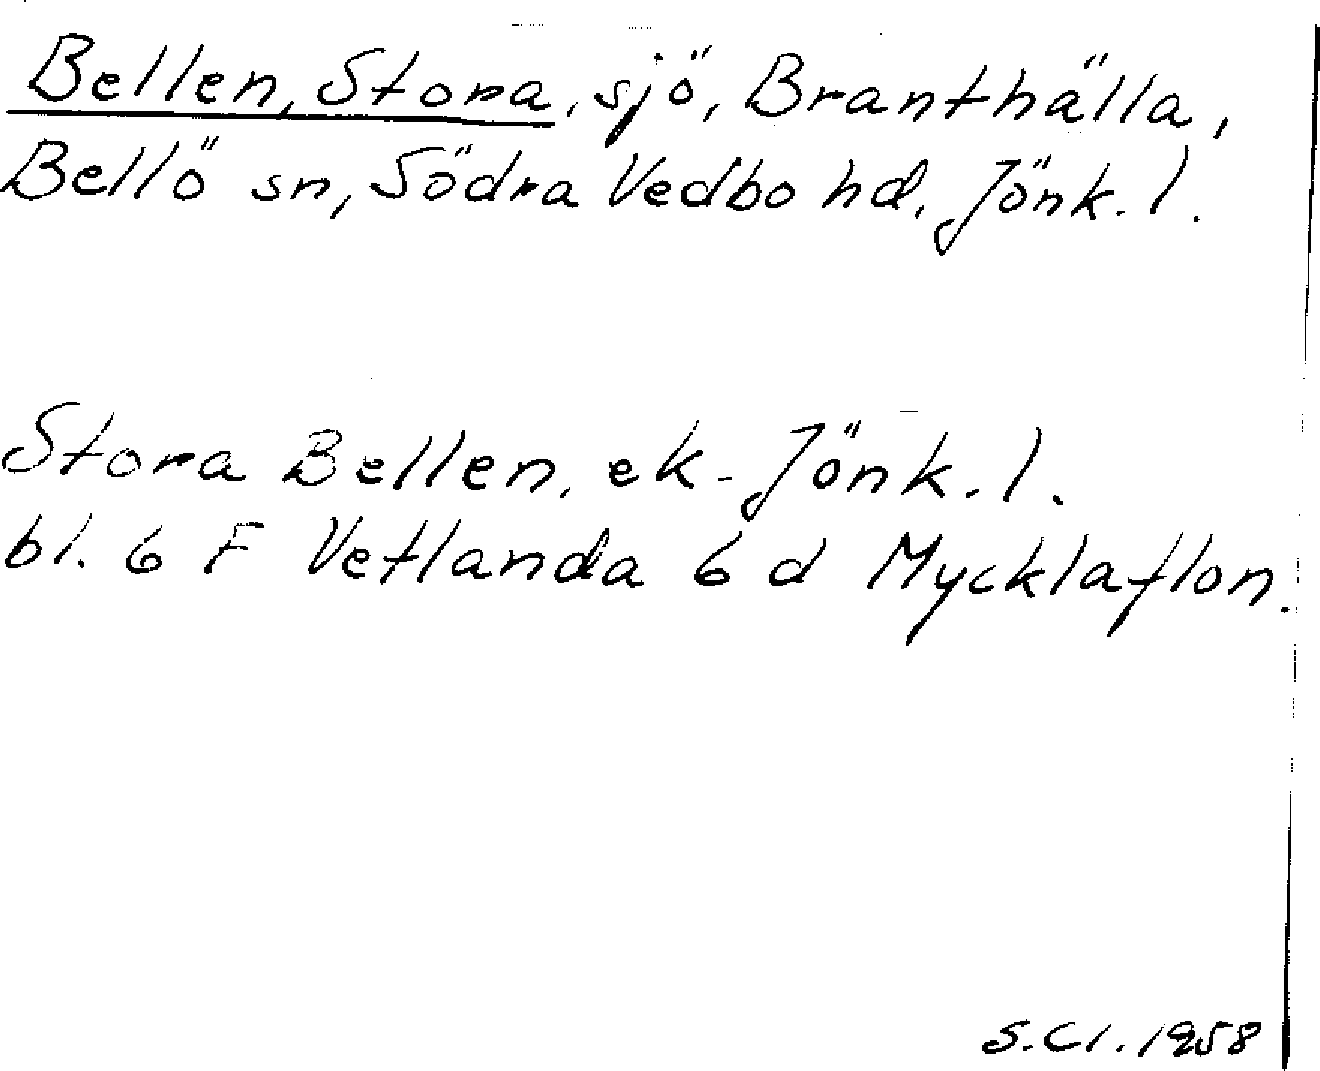 Bellen, Stora, sjö, Branthälla,
Bellö sn, Södra Vedbo hd, Jönk. l.
Stora Bellen, ek. Jönk. l.
bl. 6 F Vetlanda 6 d Mycklaflon.
S. Cl. 1958